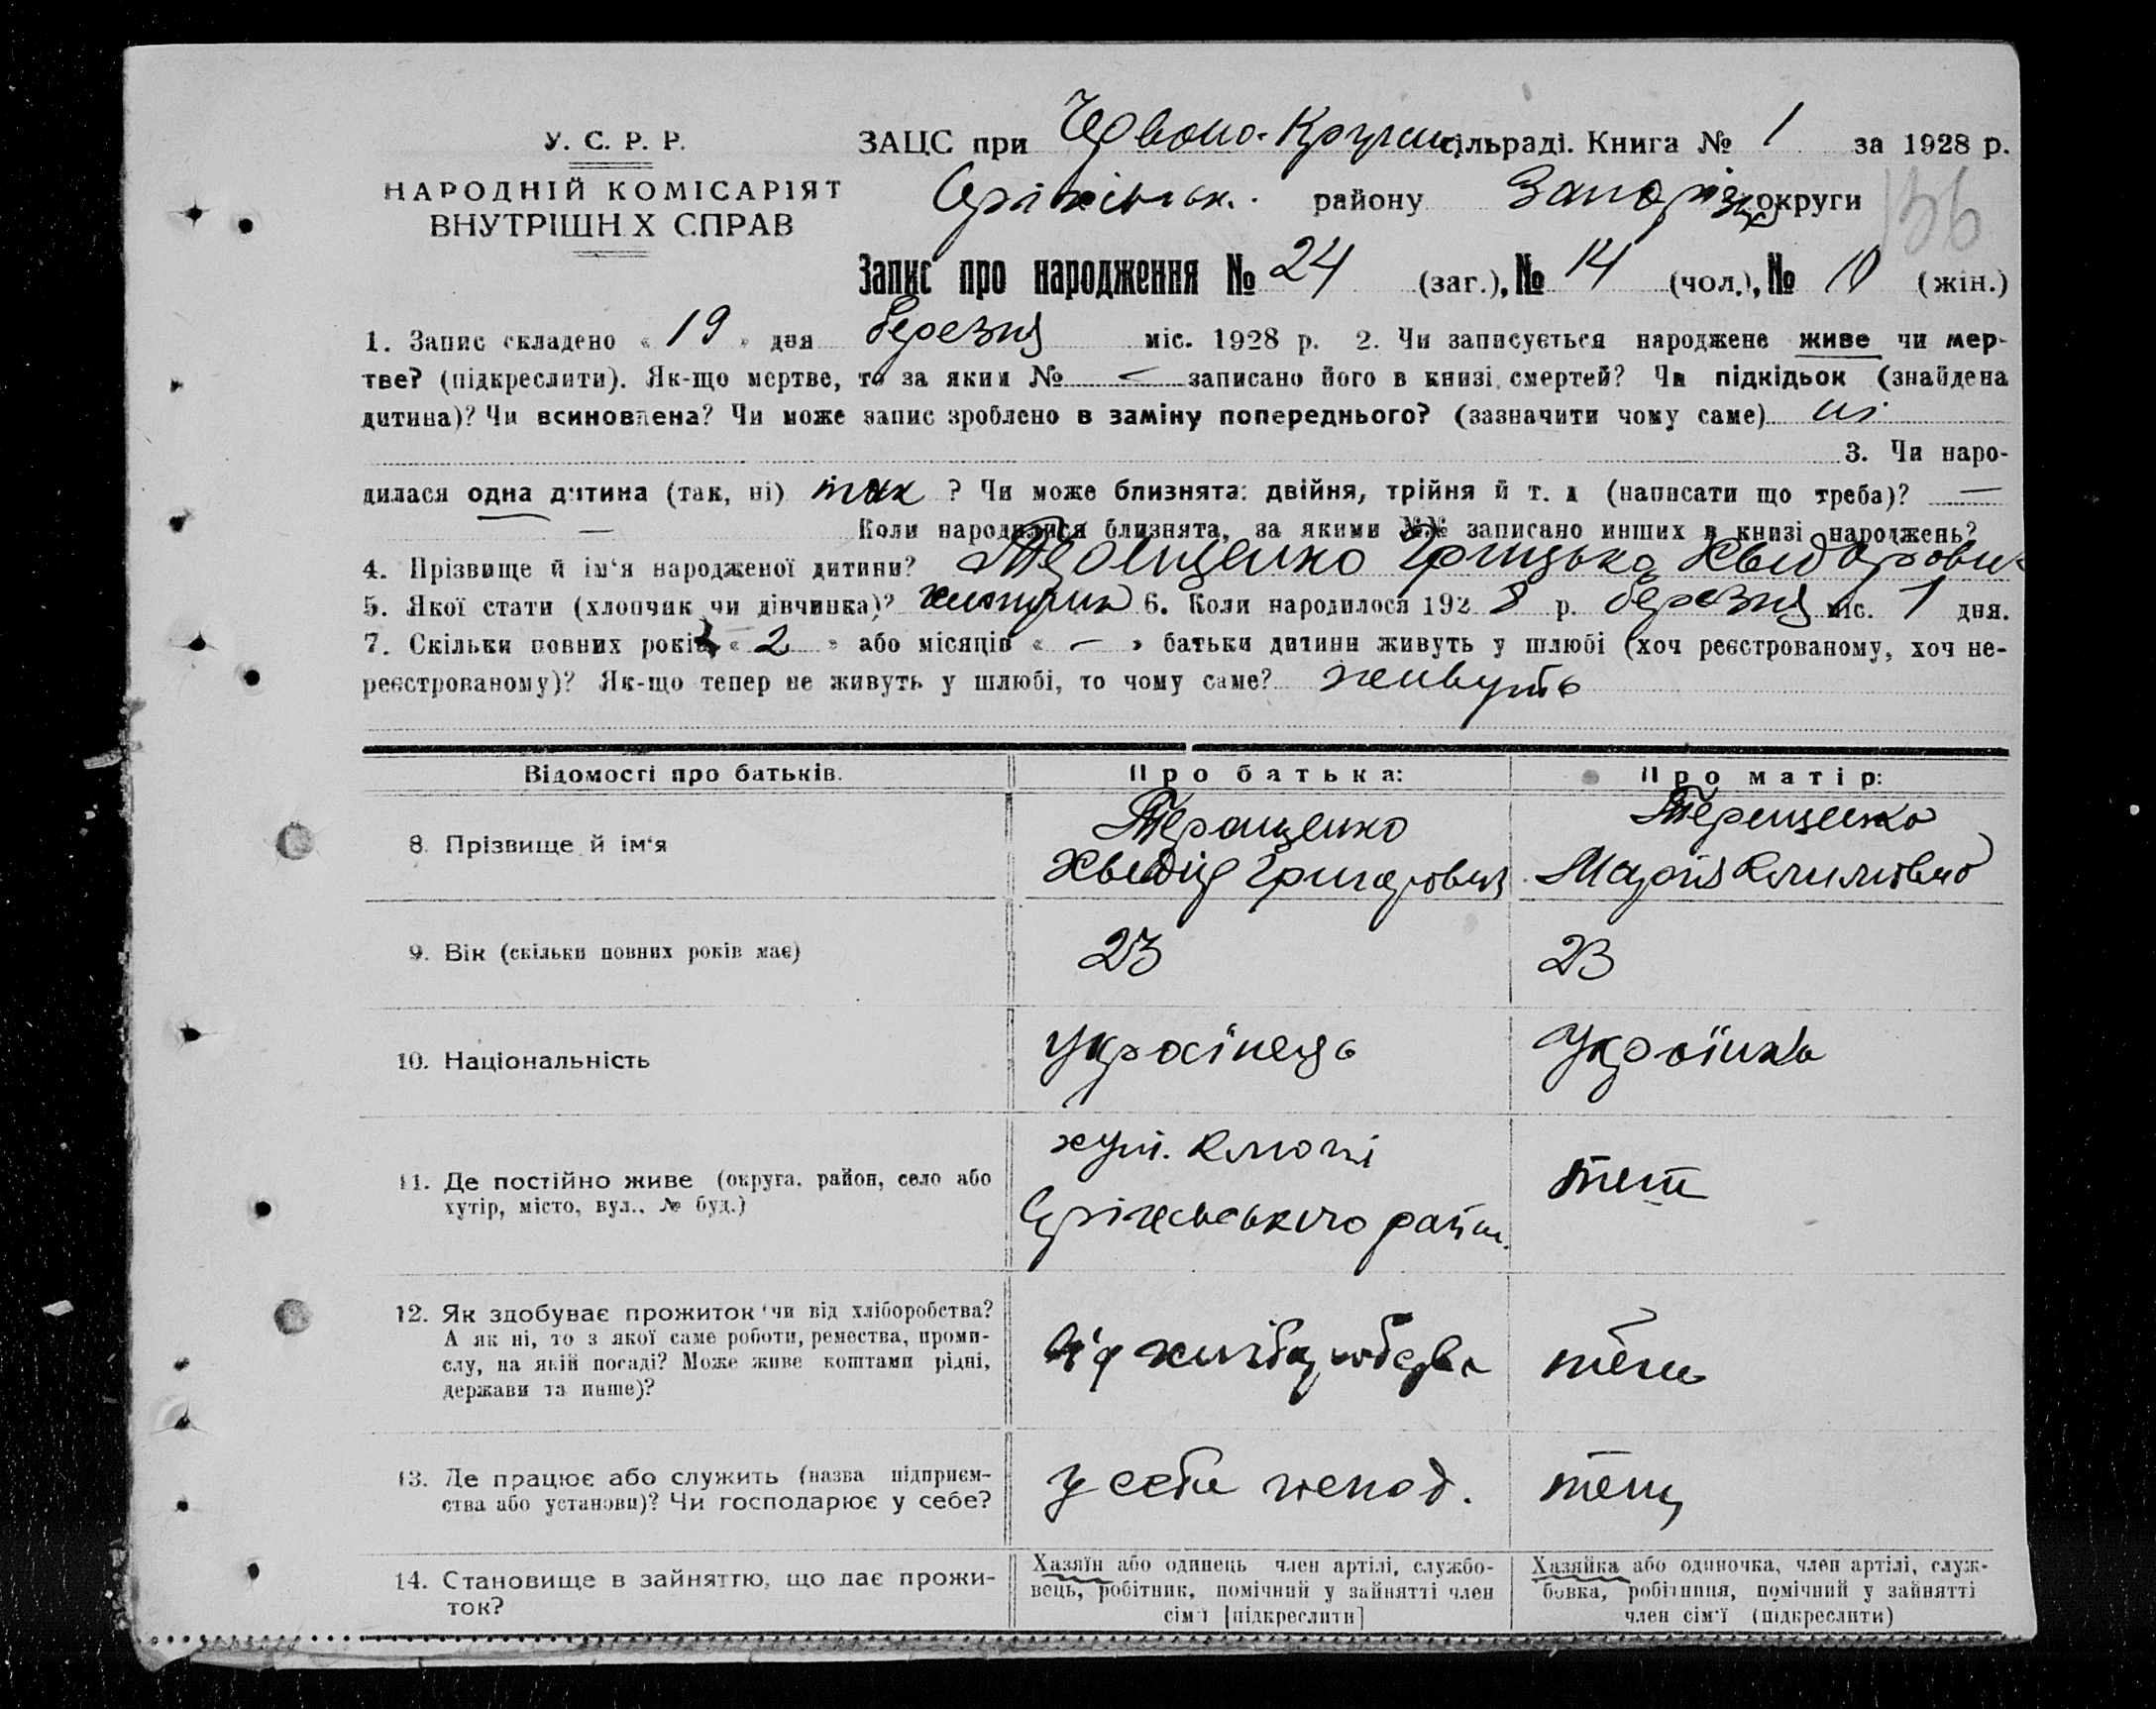 У. С. Р. Р.
НАРОДНІЙ КОМІСАРІЯТ
ВНУТРІШН Х СПРАВ
ЗАЦС при Червоно- сільраді. Книга № 1 за 1928 р.
Оріхівськ. району Запорізьк округи
136
Запис про народження № 24 (заг.), № 14 (чол.), № 10 (жін.)
1. Запис складено « 19 » дня березня міс. 1928 р. 2. Чи записується народжене живе чи мер-
тве? (підкреслити). Як-що мертве, то за яким № — записано його в книзі смертей? Чи підкідьок (знайдена
дитина)? Чи всиновлена? Чи може запис зроблено в заміну попереднього? (зазначити чому саме) ні
3. Чи наро-
дилася одна дитина (так, ні) так ? Чи може близнята: двійня, трійня й т. д (написати що треба)? —
— Коли народилися близнята, за якими №№ записано инших в книзі народжень?
4. Прізвище й ім‘я народженої дитини? Терещенко Грицько Хведорович
5. Якої стати (хлопчик чи дівчинка)? хлопчик 6. Коли народилося 192 8 р. березня міс. 1 дня.
7. Скільки повних років « 2 » або місяців « — » батьки дитини живуть у шлюбі (хоч реєстрованому, хоч не-
реєстрованому)? Як-що тепер не живуть у шлюбі, то чому саме? живуть
Відомості про батьків. Про батька: Про матір:
8. Прізвище й ім‘я
Терещенко
Хведір Григорович
Терещенко
Марія Климівна
9. Вік (скільки повних років має) 23 23
10. Національність Українець Українка
11. Де постійно живе (округа, район, село або
хутір, місто, вул., № буд.)
хут. Ключі
Оріхівського район.
теж
12. Як здобуває прожиток чи від хліборобства?
А як ні, то з якої саме роботи, ремества, проми-
слу, на якій посаді? Може живе коштами рідні,
держави та инше)?
від хліборобства
теж
13. Де працює або служить (назва підприєм-
ства або установи)? Чи господарює у себе?
у себе господ.
теж
14. Становище в зайняттю, що дає прожи-
ток?
Хазяїн або одинець член артілі, службо-
вець, робітник, помічний у зайнятті член
сім‘ї [підкреслити]
Хазяйка або одиночка, член артілі, служ-
бовка, робітниця, помічний у зайнятті
член сім‘ї (підкреслити)